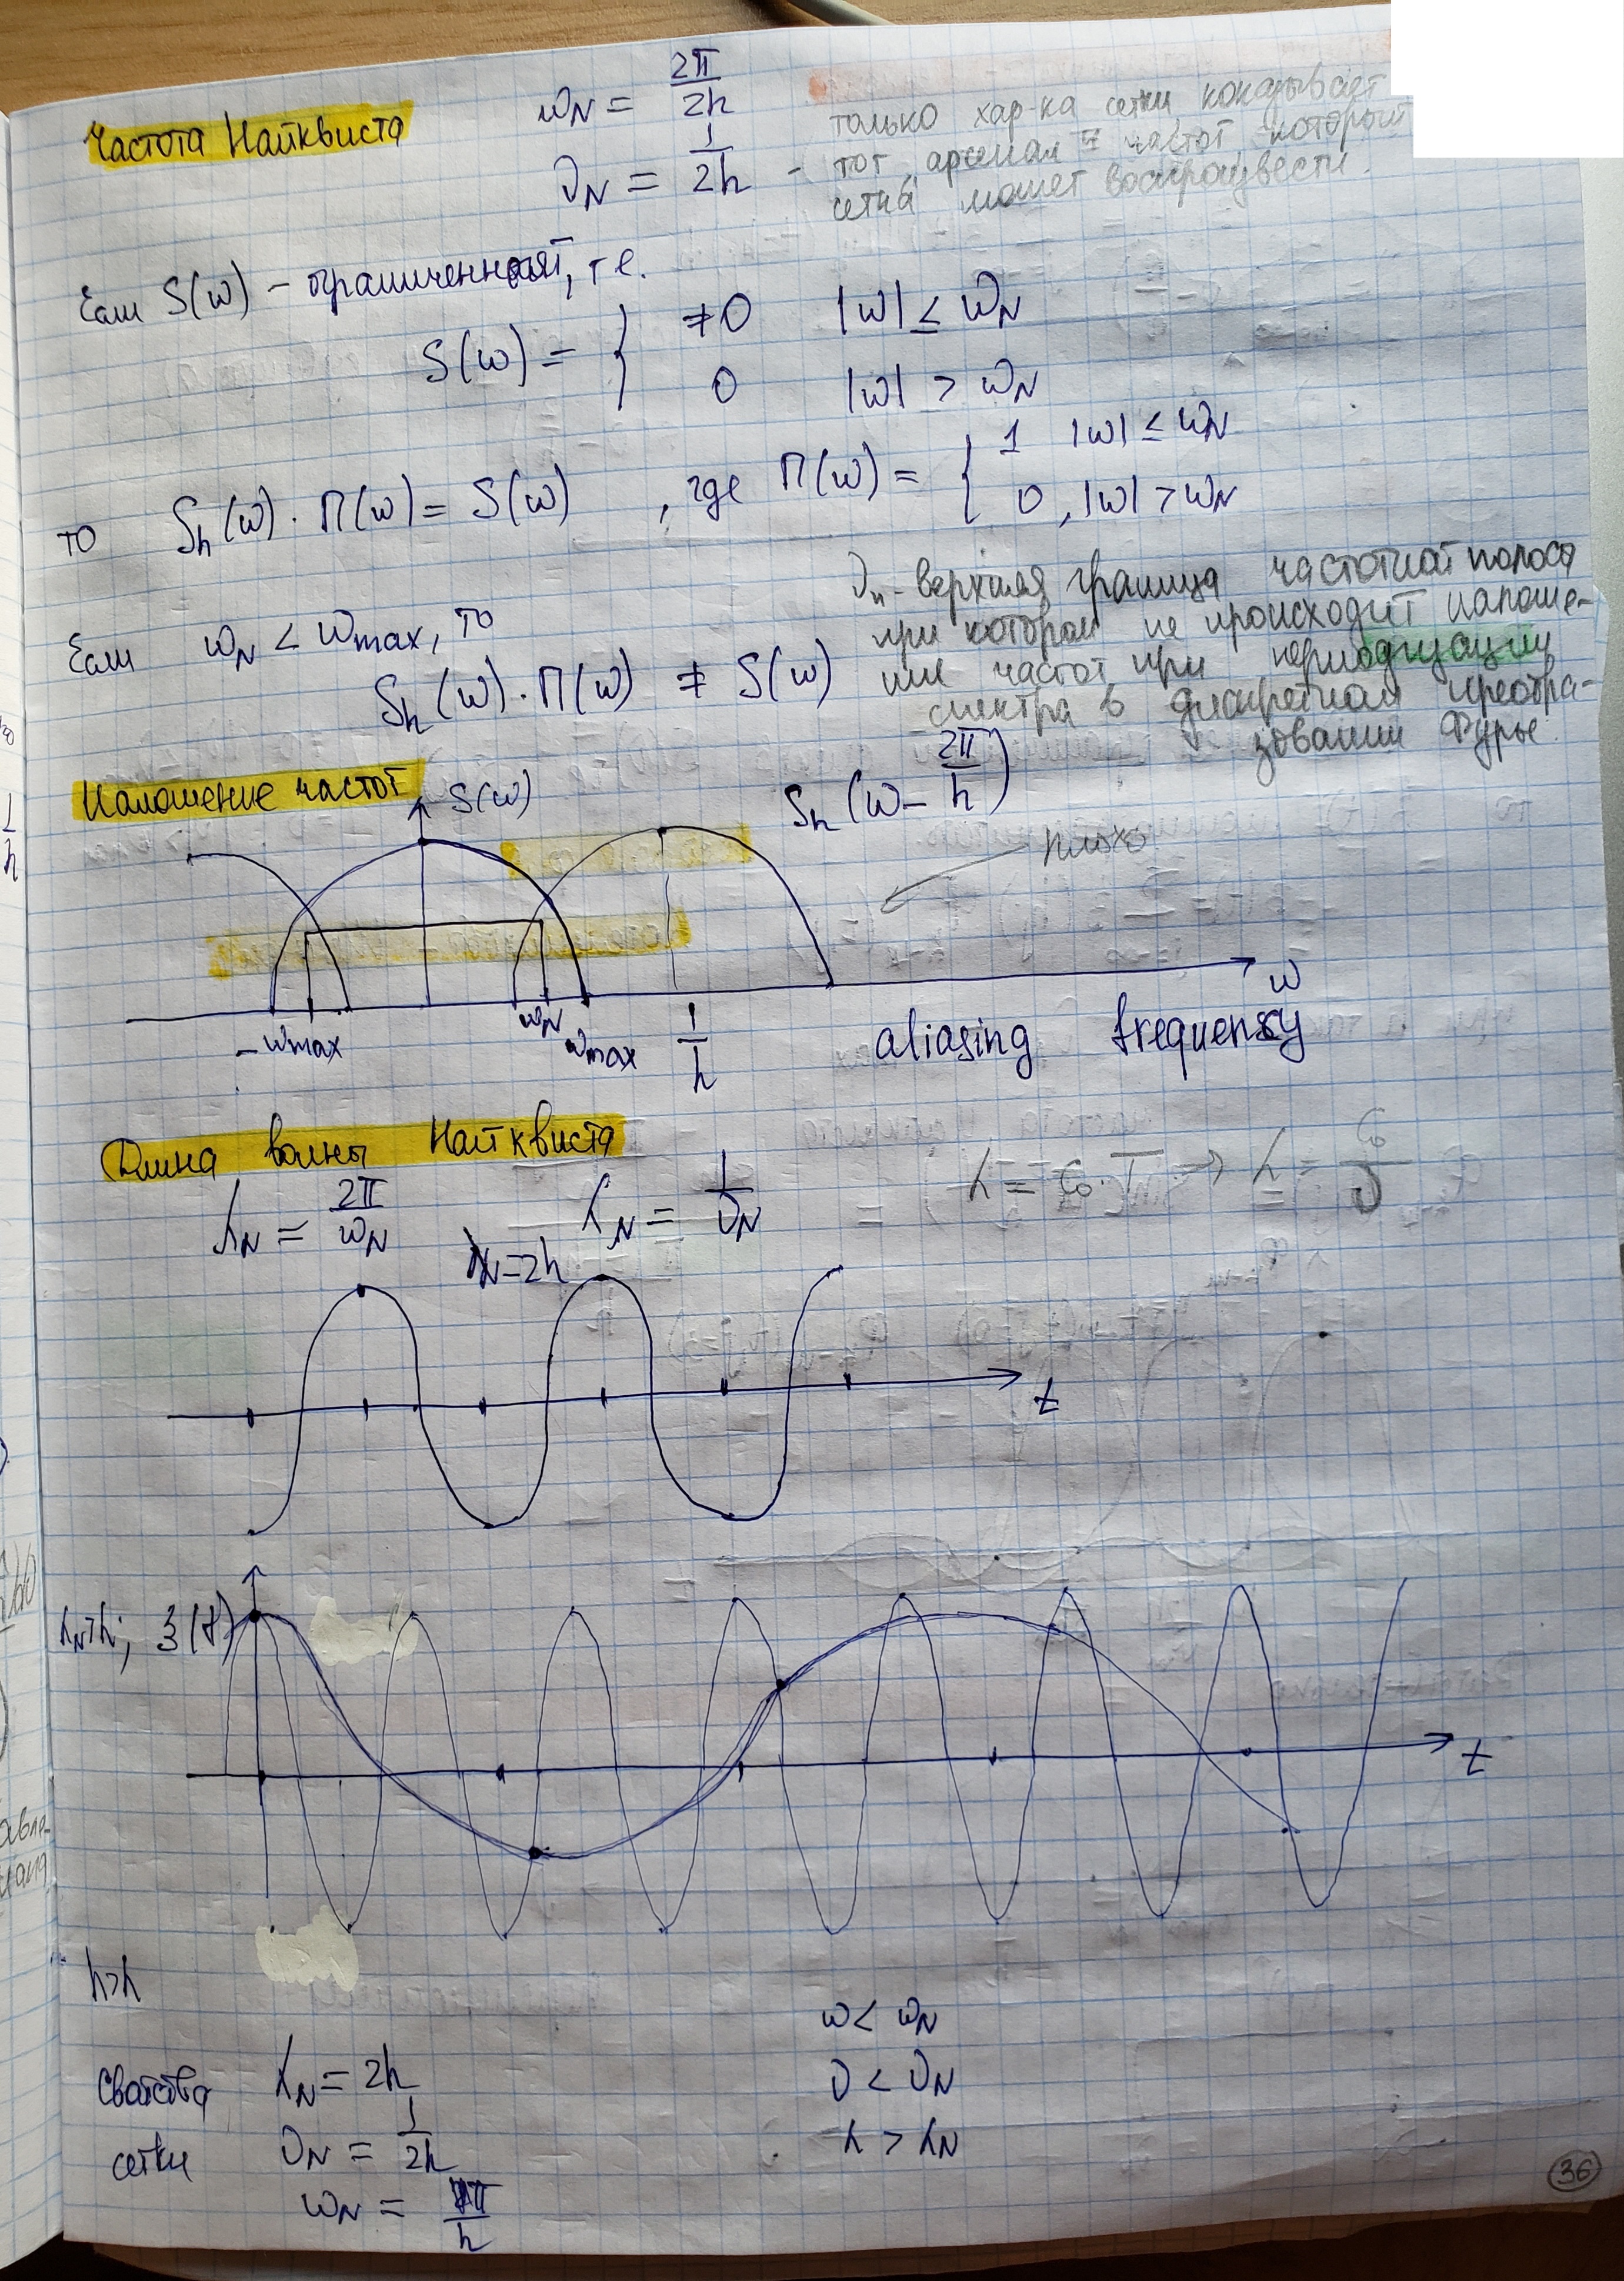 Частота Найквиста
ω_N = 2π/2h
ν_N = 1/2h - только хар-ка сетки, показывает
тот арсенал частот, который
сетка может воспроизвести.
Если S(ω) – ограниченный, т.е.
S(ω) = { ≠0 |ω| ≤ ω_N
0 |ω| > ω_N
то S_h(ω) · П(ω) = S(ω), где П(ω) = { 1 |ω| ≤ ω_N
0, |ω| > ω_N
Если ω_N < ω_max, то
S_h(ω) · П(ω) ≠ S(ω)
ν_n - верхняя граница частотной полосы
при котором не происходит наложе-
ние частот при периодизации
спектра в дискретном преобра-
зовании Фурье.
Наложение частот
S(ω)
S_h(ω – 2π/h)
плохо
-ω_max ω_N ω_max 1/h ω
aliasing frequency
Длина волны Найквиста
λ_N = 2π/ω_N λ_N = 1/ν_N
λ_N = 2h
t
ξ(t)
t
Свойства сетки
λ_N = 2h
ν_N = 1/2h
ω_N = π/h
ω < ω_N
ν < ν_N
λ > λ_N
36